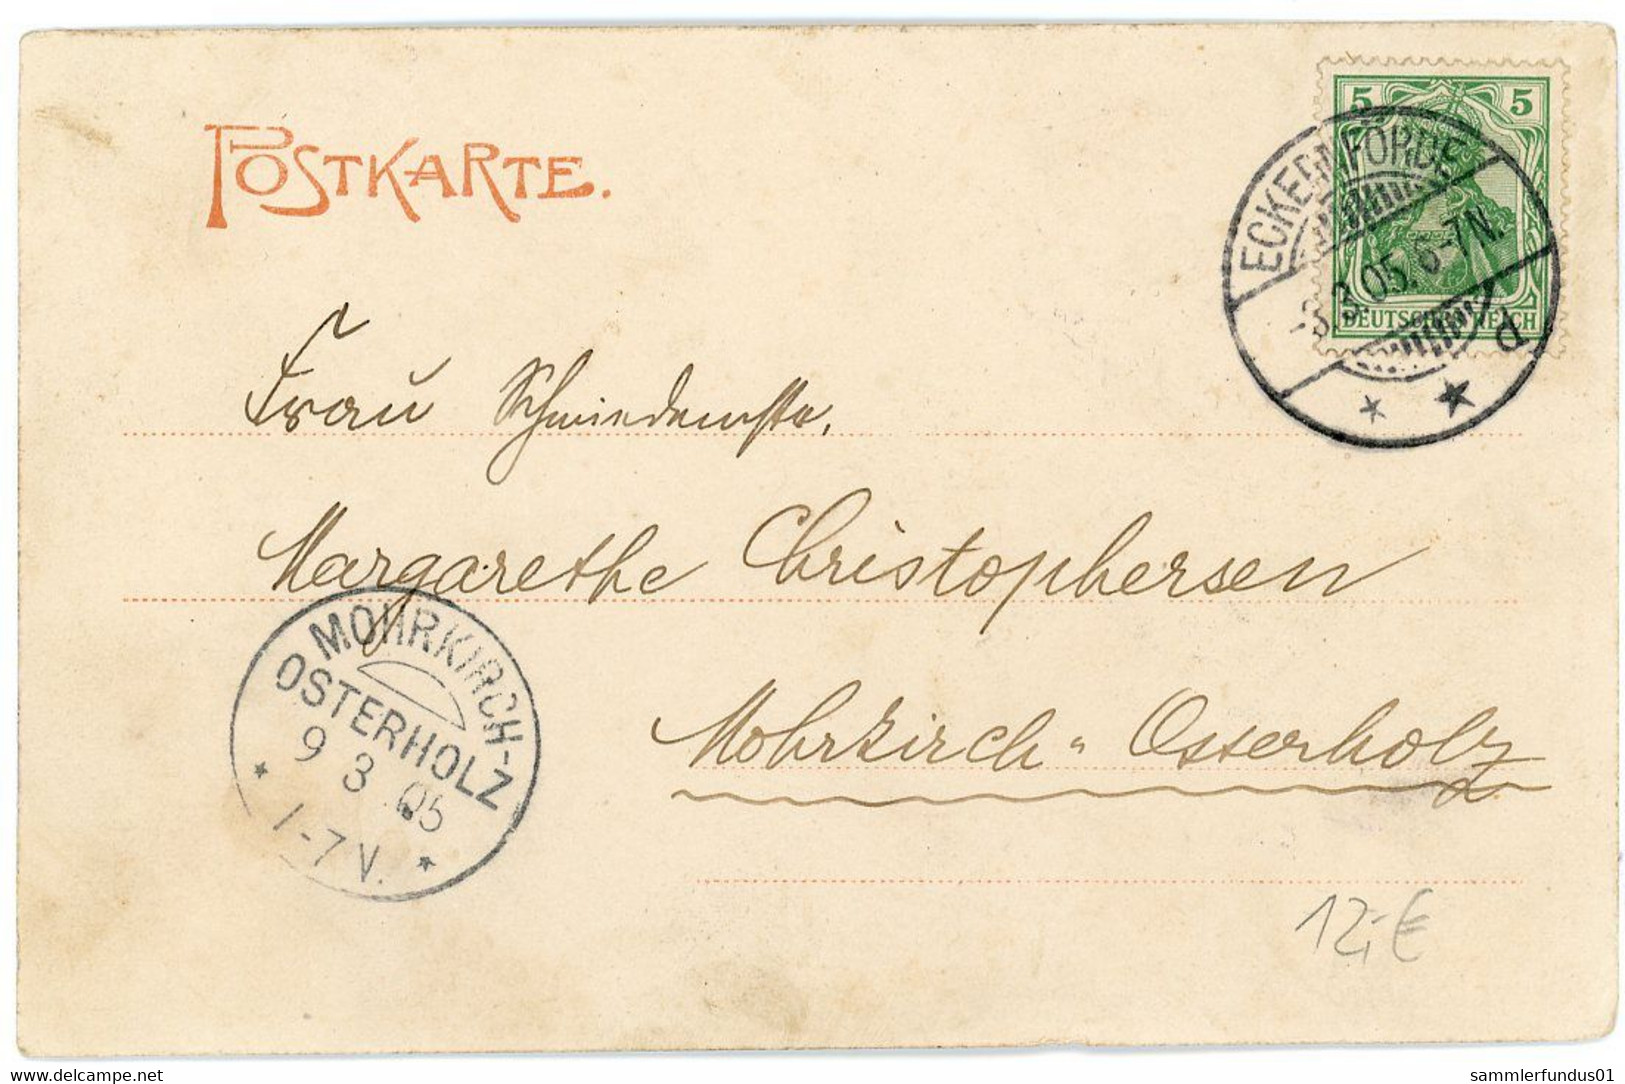 POSTKARTE.
5 5
DEUTSCHES REICH
ECKERNFÖRDE
8.3.05. 6-7N.
Frau Schmiedemstr.
Margarethe Christophersen
Mohrkirch-Osterholz
MOHRKIRCH-
OSTERHOLZ
9 3 05
1-7 V.
12,-€
www.delcampe.net
sammlerfundus01